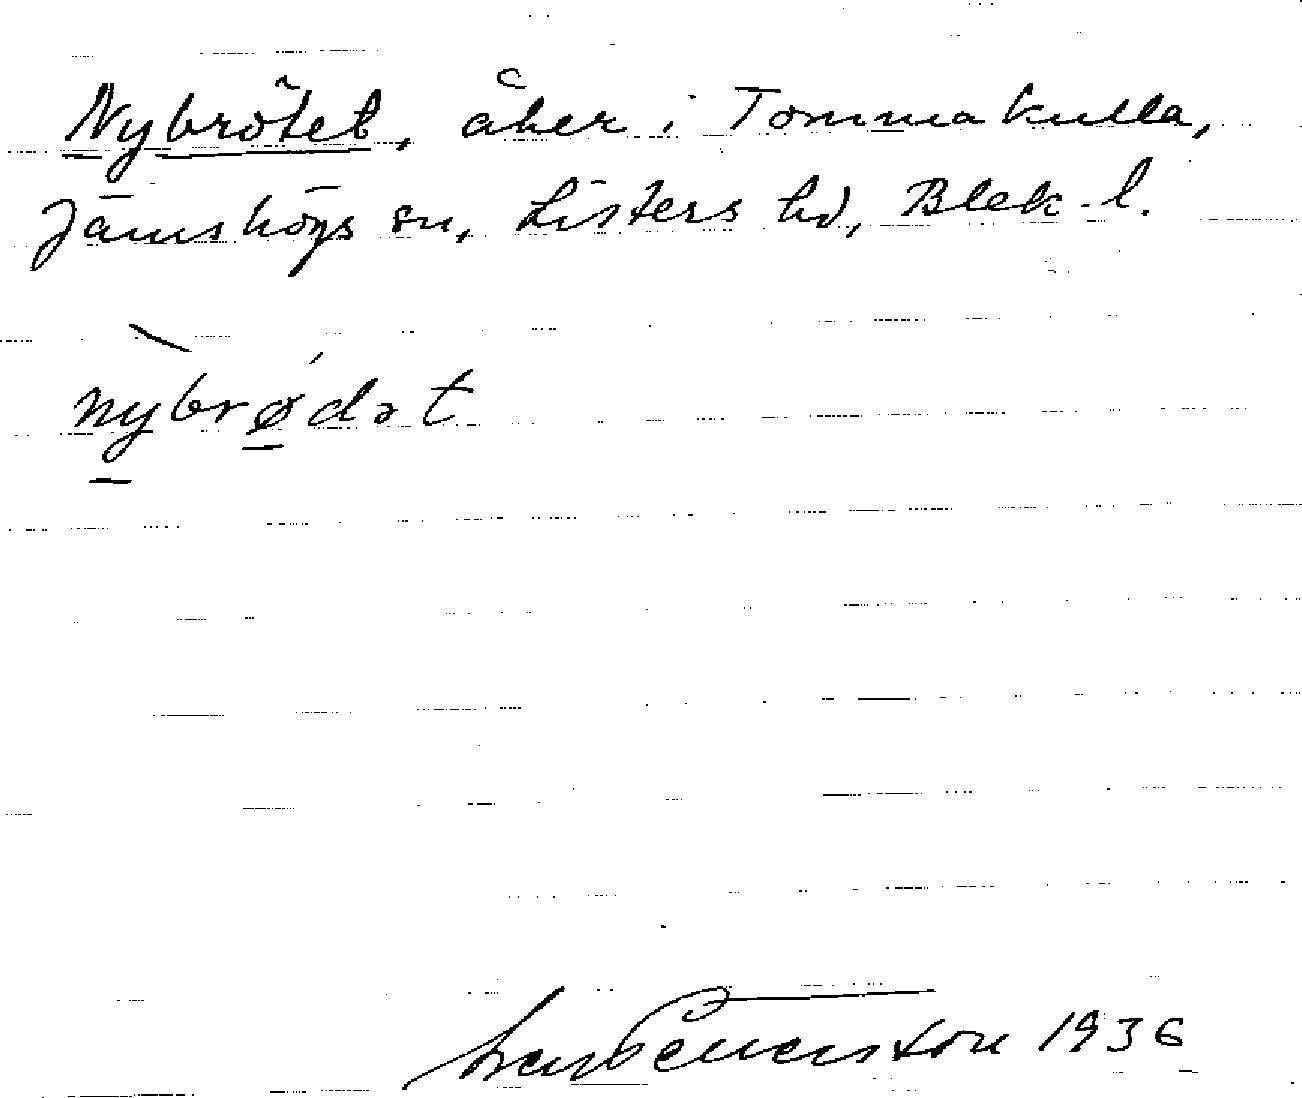 Nybrötet, åker i Tommakulla,
Jämshögs sn, Listers hd, Blek. l.
nybrødət
1936